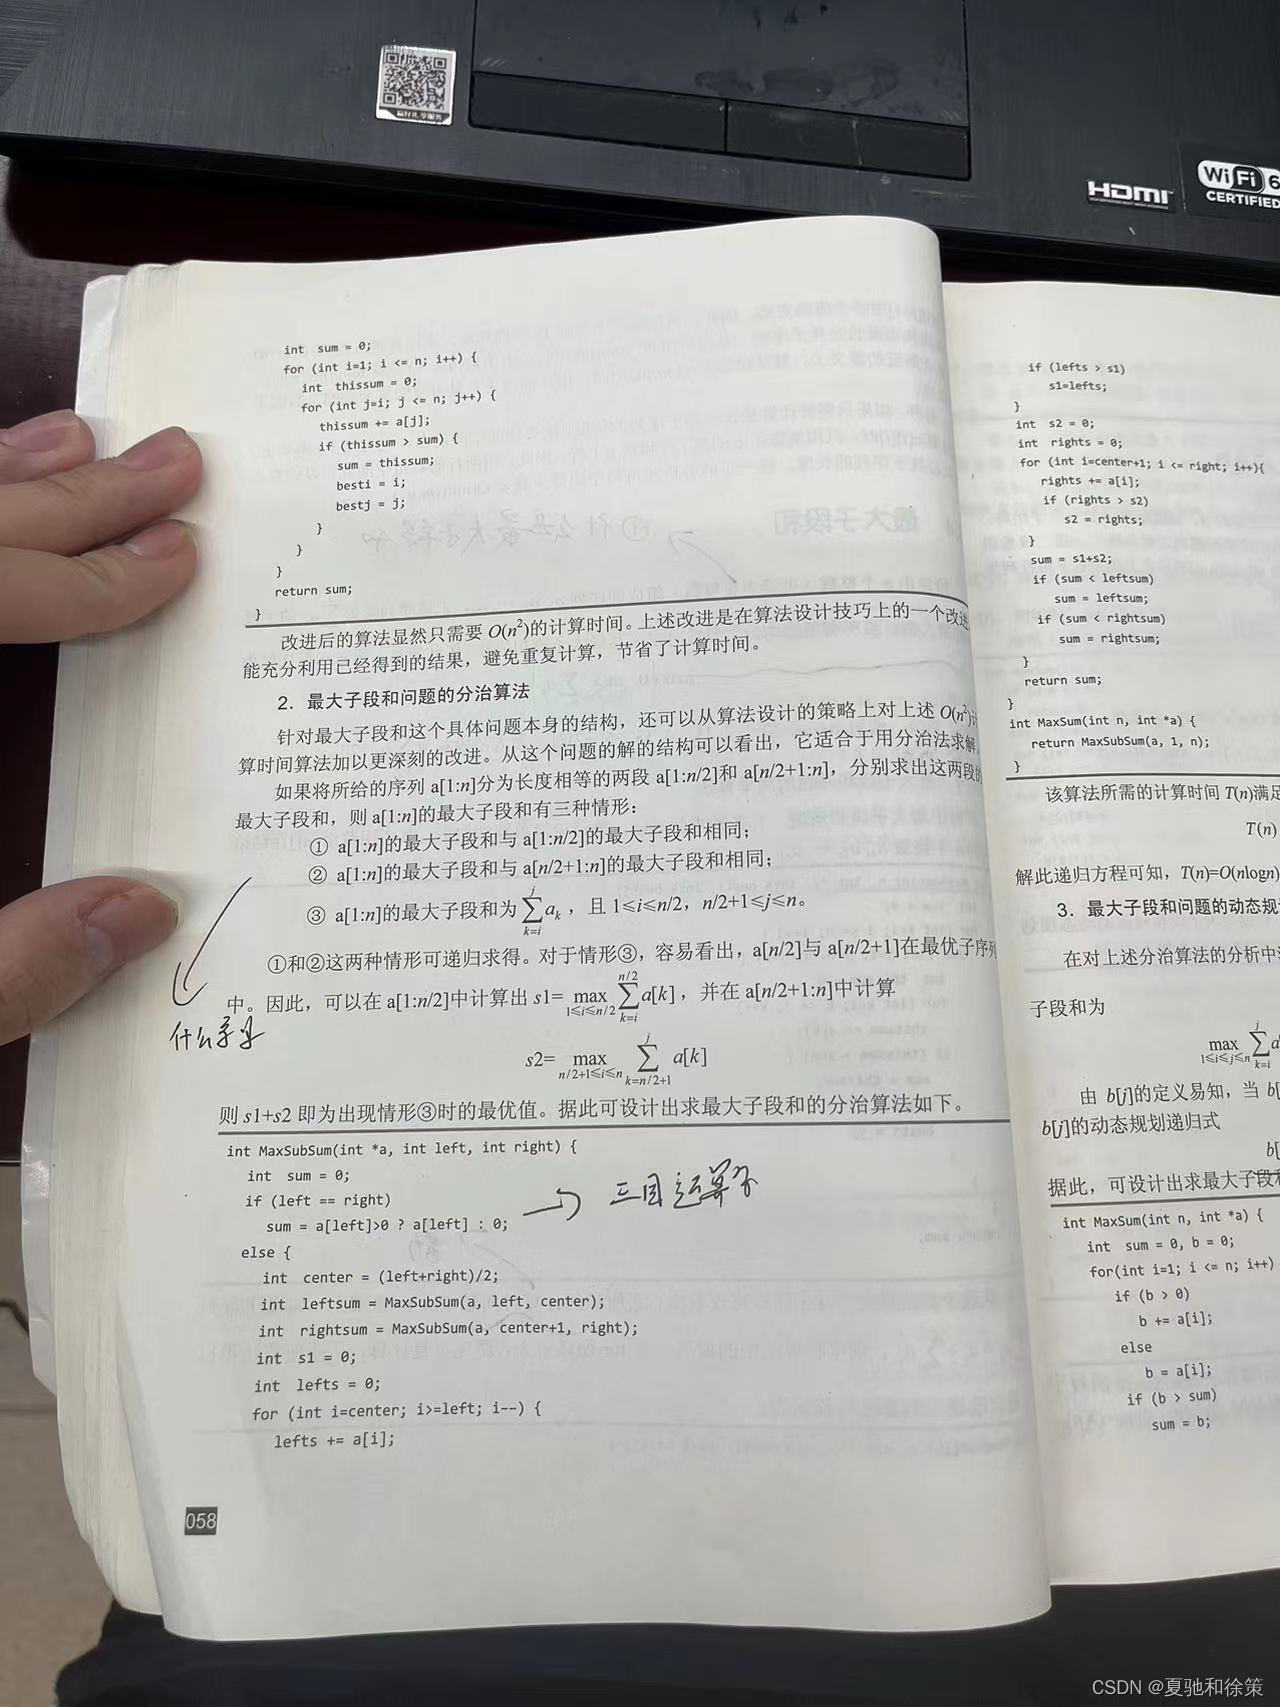 赢好礼 享服务
HDMI
WiFi 6
CERTIFIED
int sum = 0;
for (int i=1; i <= n; i++) {
int thissum = 0;
for (int j=i; j <= n; j++) {
thissum += a[j];
if (thissum > sum) {
sum = thissum;
besti = i;
bestj = j;
}
}
}
return sum;
}
改进后的算法显然只需要 O(n²)的计算时间。上述改进是在算法设计技巧上的一个改进
能充分利用已经得到的结果，避免重复计算，节省了计算时间。
2. 最大子段和问题的分治算法
针对最大子段和这个具体问题本身的结构，还可以从算法设计的策略上对上述 O(n²)
算时间算法加以更深刻的改进。从这个问题的解的结构可以看出，它适合于用分治法求解
如果将所给的序列 a[1:n]分为长度相等的两段 a[1:n/2]和 a[n/2+1:n]，分别求出这两段的
最大子段和，则 a[1:n]的最大子段和有三种情形：
① a[1:n]的最大子段和与 a[1:n/2]的最大子段和相同；
② a[1:n]的最大子段和与 a[n/2+1:n]的最大子段和相同；
③ a[1:n]的最大子段和为 ∑_{k=i}^{j} a_k，且 1≤i≤n/2，n/2+1≤j≤n。
①和②这两种情形可递归求得。对于情形③，容易看出，a[n/2]与 a[n/2+1]在最优子序列
中。因此，可以在 a[1:n/2]中计算出 s1= max_{1≤i≤n/2} ∑_{k=i}^{n/2} a[k]，并在 a[n/2+1:n]中计算
什么
s2= max_{n/2+1≤i≤n} ∑_{k=n/2+1}^{j} a[k]
则 s1+s2 即为出现情形③时的最优值。据此可设计出求最大子段和的分治算法如下。
int MaxSubSum(int *a, int left, int right) {
int sum = 0;
if (left == right)
sum = a[left]>0 ? a[left] : 0;
三目运算符
else {
int center = (left+right)/2;
int leftsum = MaxSubSum(a, left, center);
int rightsum = MaxSubSum(a, center+1, right);
int s1 = 0;
int lefts = 0;
for (int i=center; i>=left; i--) {
lefts += a[i];
058
if (lefts > s1)
s1=lefts;
}
int s2 = 0;
int rights = 0;
for (int i=center+1; i <= right; i++){
rights += a[i];
if (rights > s2)
s2 = rights;
}
sum = s1+s2;
if (sum < leftsum)
sum = leftsum;
if (sum < rightsum)
sum = rightsum;
}
return sum;
}
int MaxSum(int n, int *a) {
return MaxSubSum(a, 1, n);
}
该算法所需的计算时间 T(n)满足
T(n)
解此递归方程可知，T(n)=O(nlogn)
3. 最大子段和问题的动态规
在对上述分治算法的分析中
子段和为
max_{1≤i≤j≤n} ∑_{k=i}^{j} a
由 b[j]的定义易知，当 b[
b[j]的动态规划递归式
b[
据此，可设计出求最大子段和
int MaxSum(int n, int *a) {
int sum = 0, b = 0;
for(int i=1; i <= n; i++)
if (b > 0)
b += a[i];
else
b = a[i];
if (b > sum)
sum = b;
CSDN @夏驰和徐策